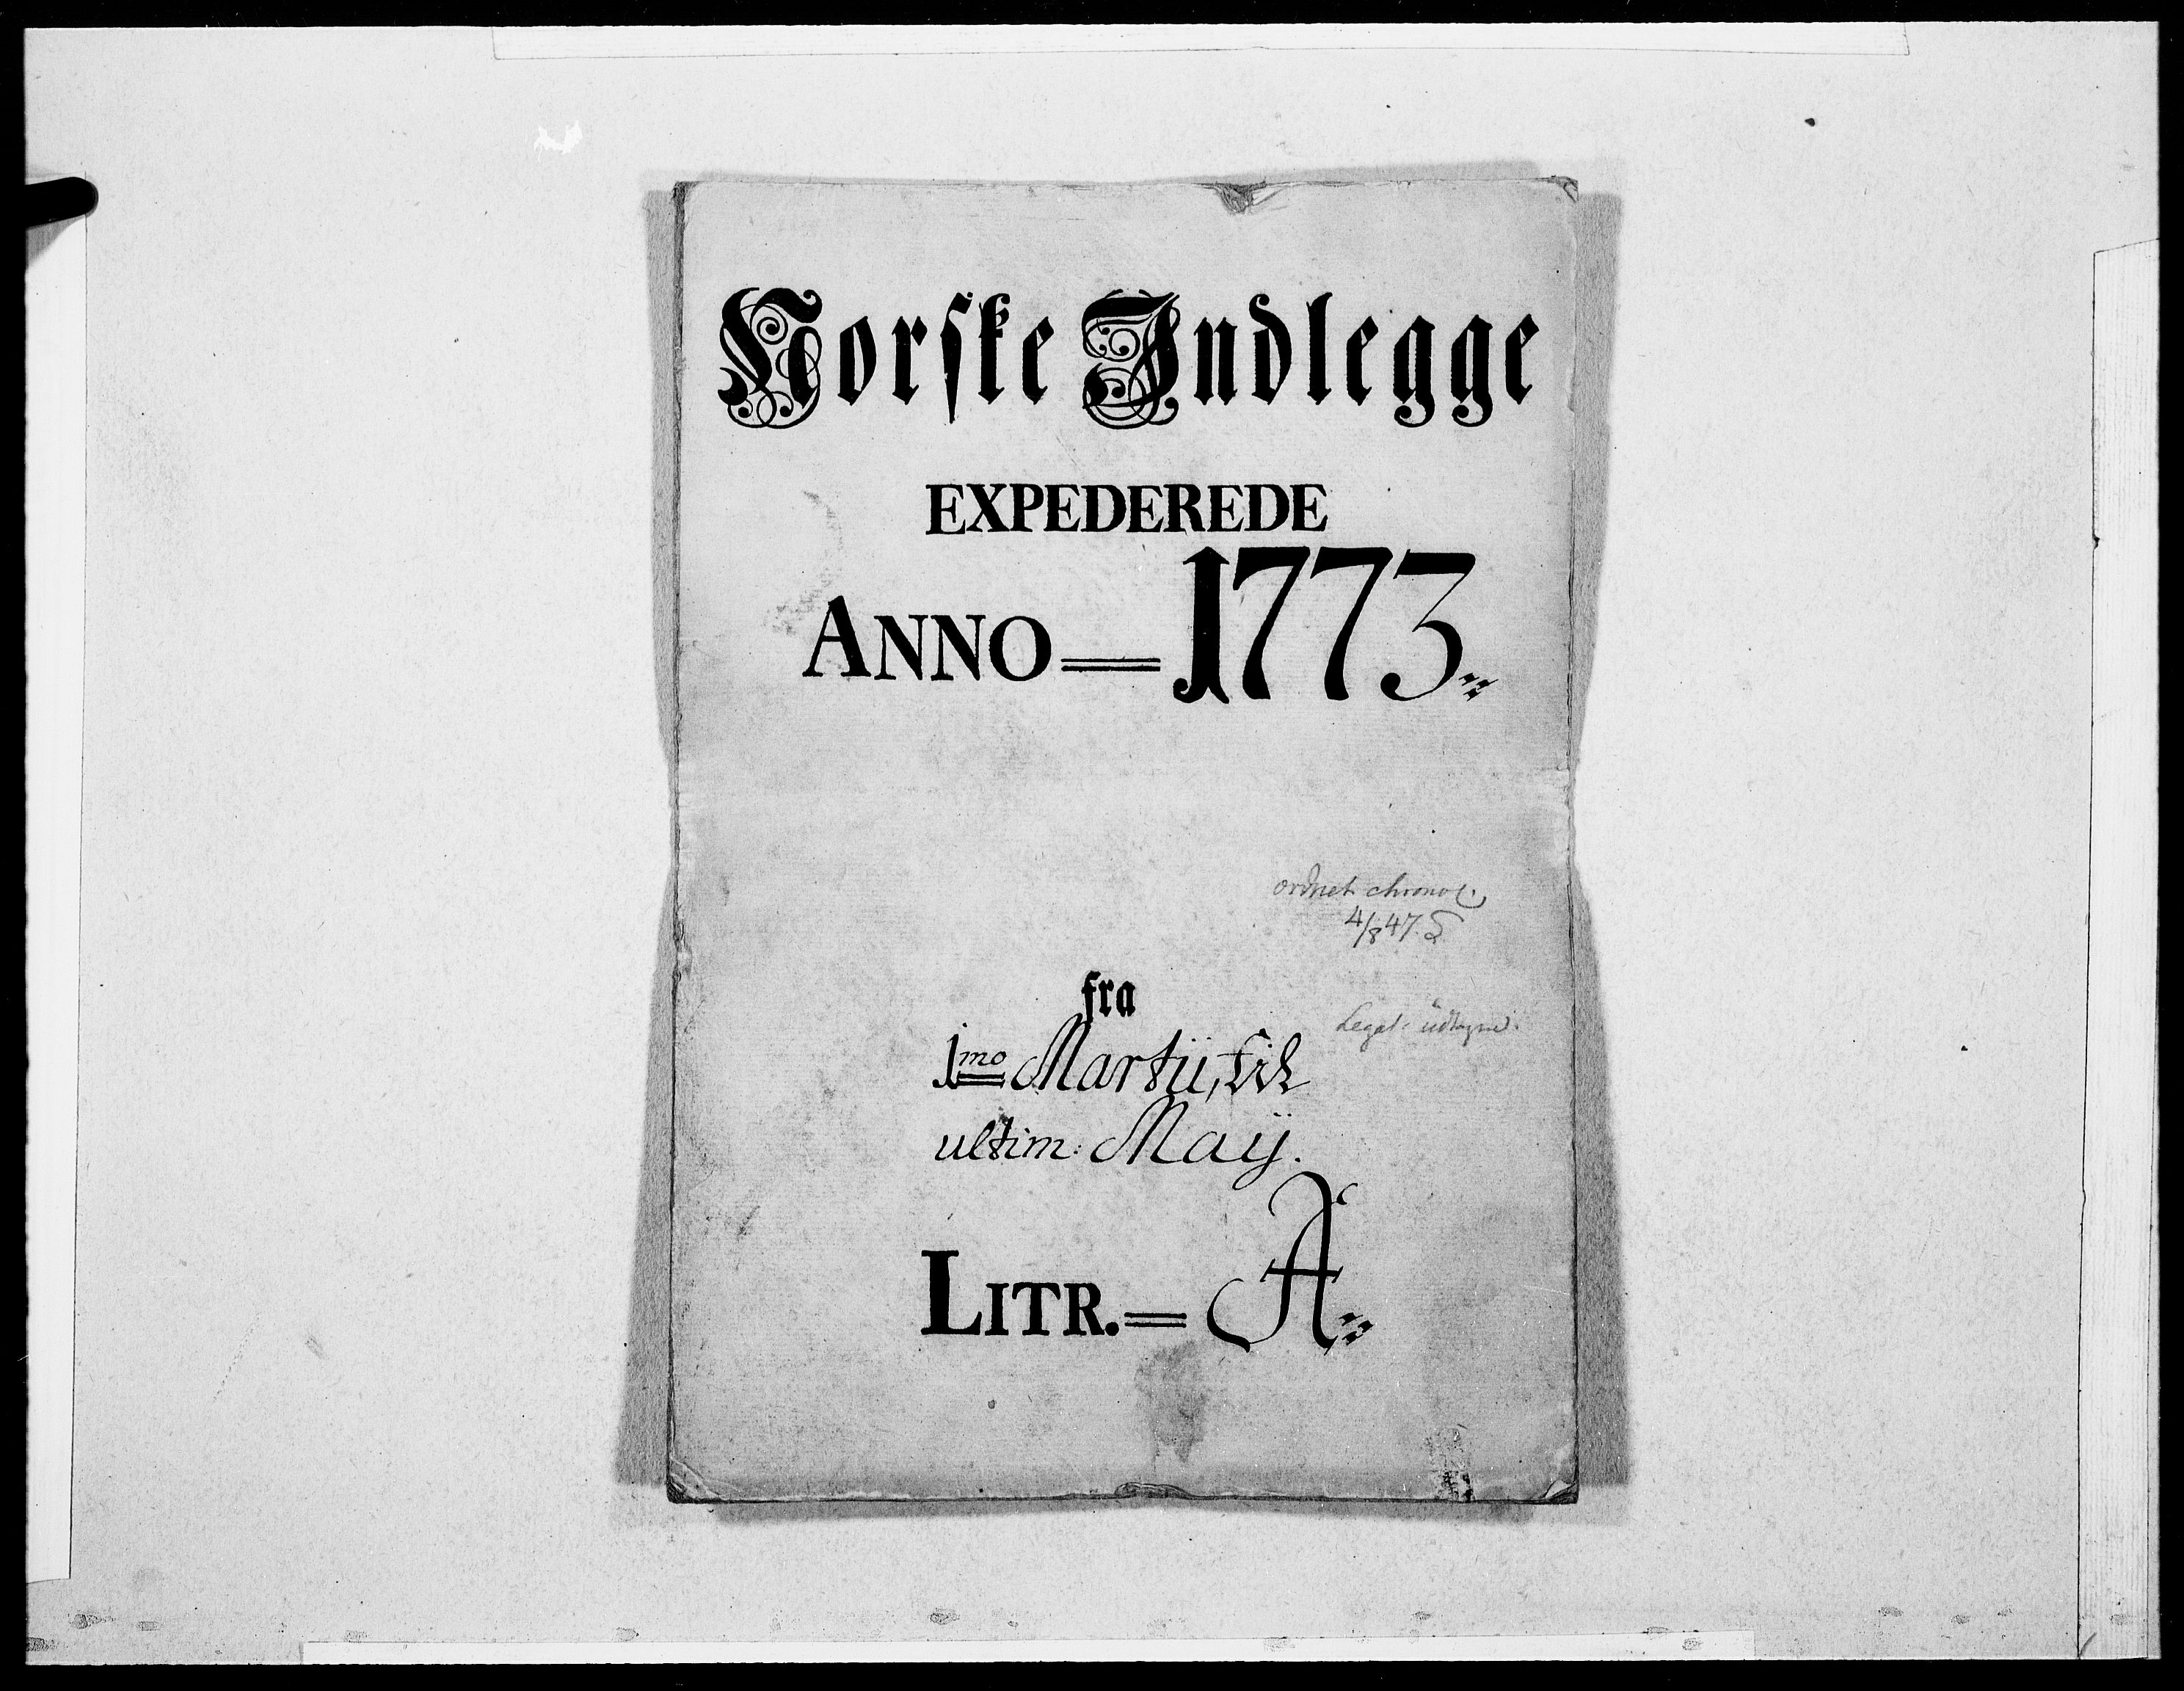 Norske Indlegge
EXPEDEREDE
ANNO = 1773.
ordnet chronol.
4/8 47. S
fra
1mo Martii, til
Legat. udtagne.
ultim: Maij.
LITR. = A